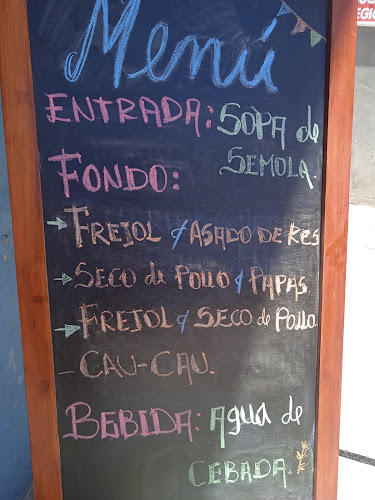 Menú
ENTRADA: SOPA de
SEMOLA.
FONDO:
FREJOL & ASADO DE Kes
SECO de POLLO & PAPAS.
FREJOL & SECO de POLLO
- CAU-CAU.
BEBIDA: Agua de
CEBADA.